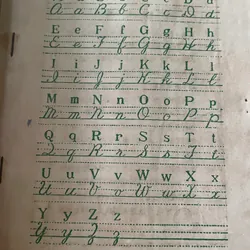 a B b C c D d
a B b C c D d
E e F f G g H h
E e F f G g H h
I i J j K k L l
I i J j K k L l
M m N n O o P p
M m N n O o P p
Q q R r S s T t
Q q R r S s T t
U u V v W w X x
U u V v W w X x
Y y Z z
Y y Z z